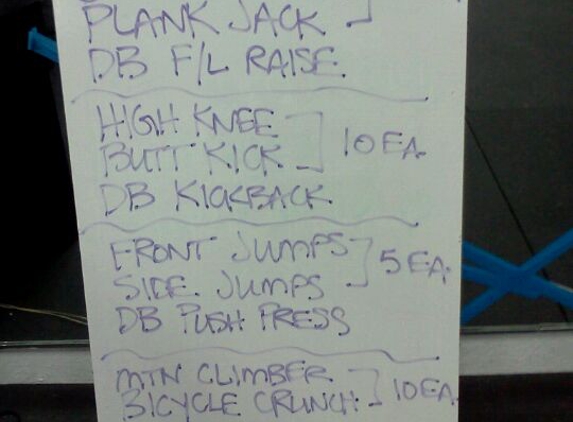 PLANK JACK
DB F/L RAISE
HIGH KNEE
BUTT KICK
10 EA.
DB KICKBACK
FRONT JUMPS
SIDE JUMPS
5 EA.
DB PUSH PRESS
MTN CLIMBER
BICYCLE CRUNCH
10 EA